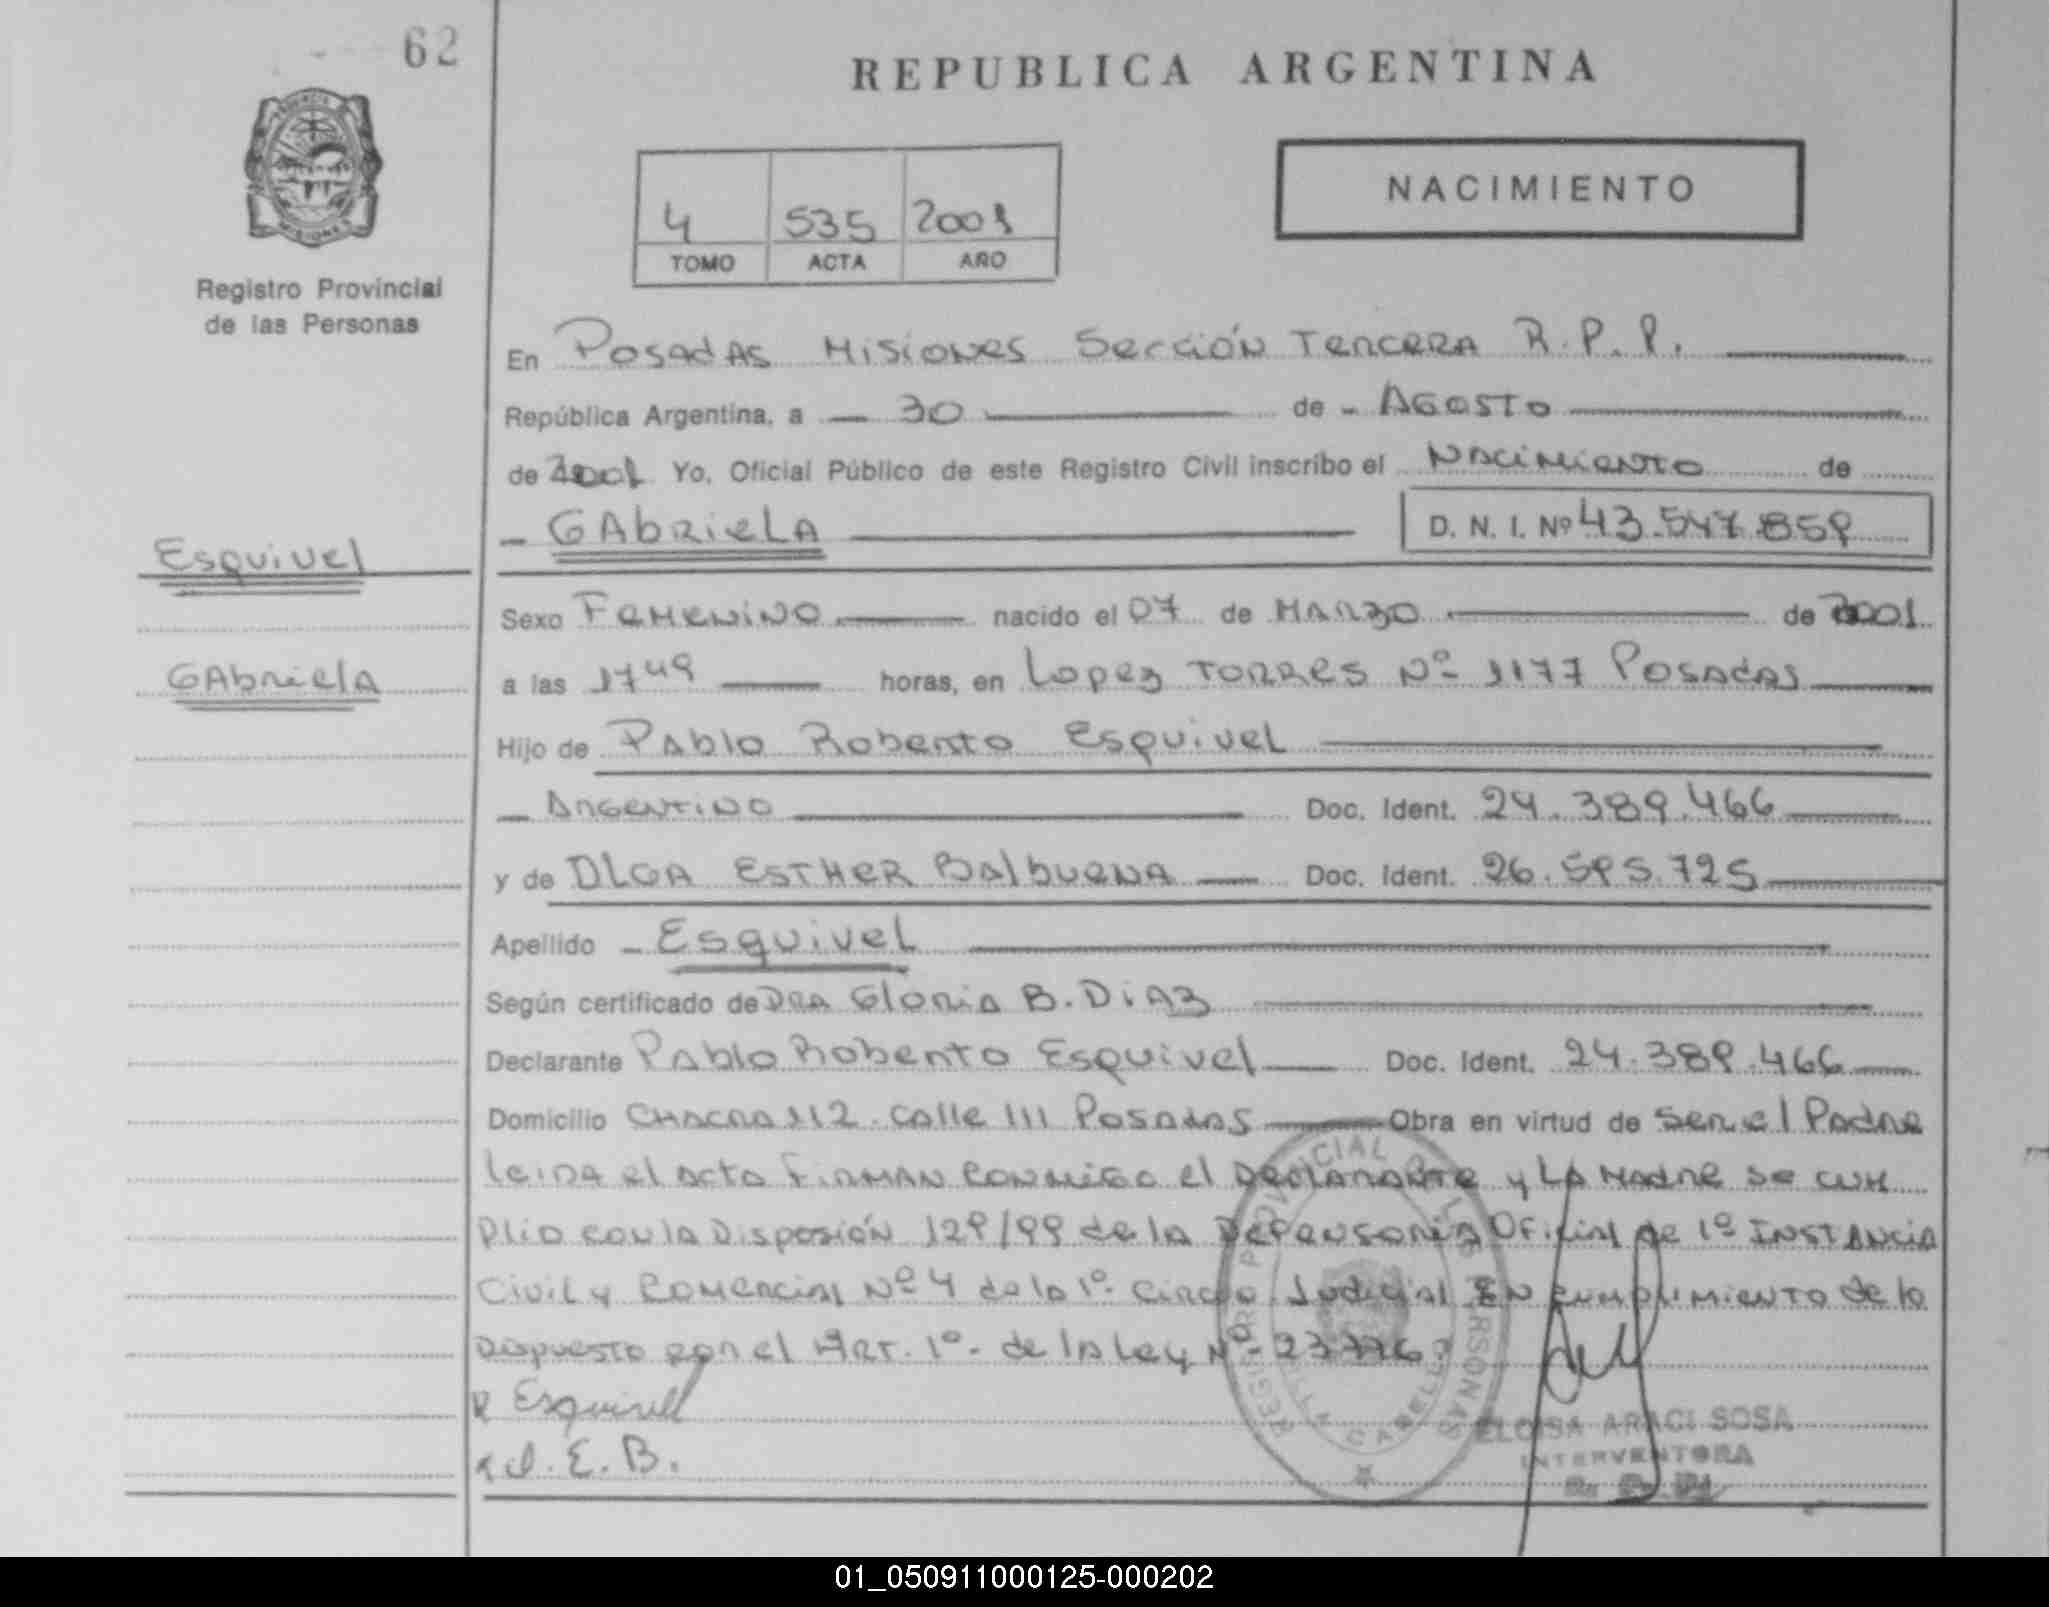 62
REPUBLICA ARGENTINA
NACIMIENTO
4 535 2001
TOMO ACTA AÑO
MISIONES
Registro Provincial
de las Personas
En Posadas Misiones Sección Tercera R.P.P.
República Argentina, a 30 de Agosto
de 2001 Yo, Oficial Público de este Registro Civil inscribo el Nacimiento de
Gabriela D. N. I. Nº 43.547.859
Esquivel
Sexo Femenino nacido el 07 de Marzo de 2001
Gabriela
a las 17 49 horas, en Lopez Torres Nº 1177 Posadas
Hijo de Pablo Roberto Esquivel
Argentino Doc. Ident. 24.389.466
y de Olga Esther Balbuena Doc. Ident. 26.595.725
Apellido Esquivel
Según certificado de Dra Gloria B. Diaz
Declarante Pablo Roberto Esquivel Doc. Ident. 24.389.466
Domicilio Chacra 112 Calle 111 Posadas Obra en virtud de ser el Padre
leida el acta Firman conmigo el Declarante y La Madre se cum
plio con la Disposión 129/99 de la Defensoria Oficial de 1º Instancia
Civil y Comercial Nº 4 de la 1º Judicial En cumplimiento de lo
Dispuesto por el Art. 1º de la Ley Nº 23776
R Esquivel
E. B.
REGISTRO PROVINCIAL DE LAS PERSONAS
VILLA CABELLO
ELOISA ARACI SOSA
INTERVENTORA
01_050911000125-000202